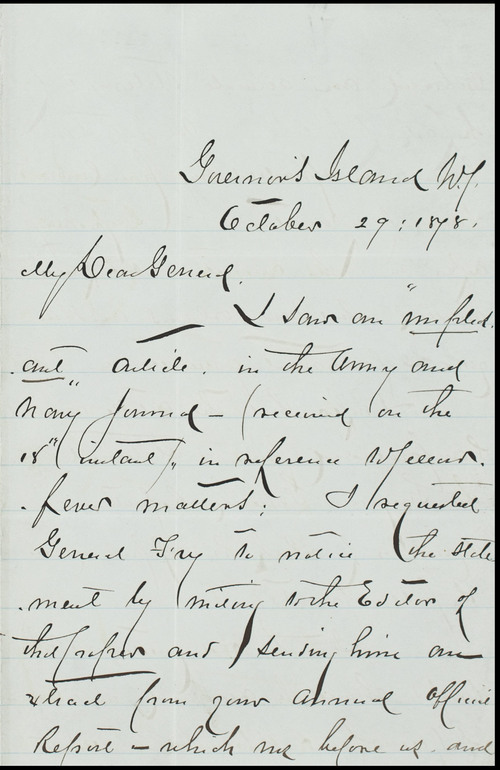 Governor's Island N.Y.
October 29: 1878.
My Dear General.
I saw an "unpleas-
ant" article. in the Army and
Navy Journal - (received on the
18" instant), in reference Yellow.
. fever matters; I requested
General Fry to notice the state
. ment by writing to the Editor of
that paper and sending him an
extract from your annual official
Report - which was before us. and